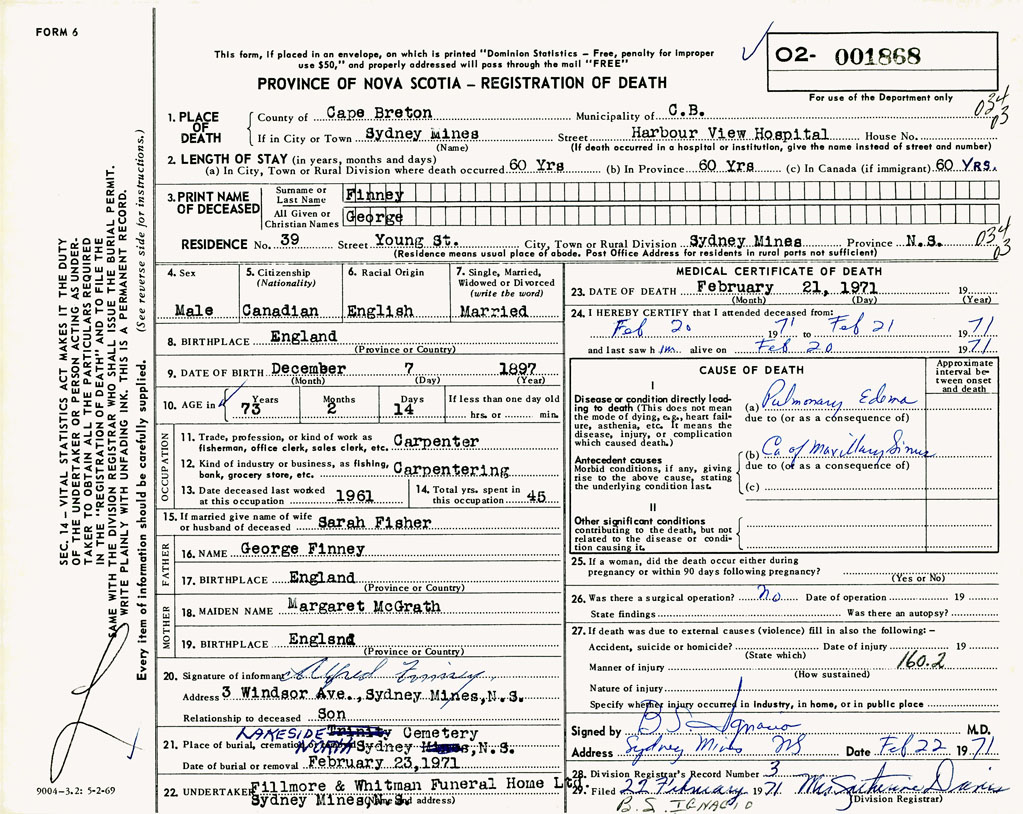 FORM 6
This form, if placed in an envelope, on which is printed "Dominion Statistics – Free, penalty for improper
use $50," and properly addressed will pass through the mail "FREE"
PROVINCE OF NOVA SCOTIA – REGISTRATION OF DEATH
02- 001868
For use of the Department only
034
03
1. PLACE OF DEATH
County of Cape Breton Municipality of C.B.
If in City or Town Sydney Mines Street Harbour View Hospital House No.
(Name) (If death occurred in a hospital or institution, give the name instead of street and number)
2. LENGTH OF STAY (in years, months and days)
(a) In City, Town or Rural Division where death occurred 60 Yrs (b) In Province 60 Yrs (c) In Canada (if immigrant) 60 YRS.
3. PRINT NAME OF DECEASED
Surname or Last Name Finney
All Given or Christian Names George
RESIDENCE No. 39 Street Young St. City, Town or Rural Division Sydney Mines Province N.S.
034
03
(Residence means usual place of abode. Post Office Address for residents in rural parts not sufficient)
4. Sex
Male
5. Citizenship
(Nationality)
Canadian
6. Racial Origin
English
7. Single, Married,
Widowed or Divorced
(write the word)
Married
8. BIRTHPLACE England
(Province or Country)
9. DATE OF BIRTH December 7 1897
(Month) (Day) (Year)
10. AGE in
Years Months Days If less than one day old
73 2 14 hrs. or min.
OCCUPATION
11. Trade, profession, or kind of work as
fisherman, office clerk, sales clerk, etc. Carpenter
12. Kind of industry or business, as fishing,
bank, grocery store, etc. Carpentering
13. Date deceased last worked
at this occupation 1961
14. Total yrs. spent in
this occupation 45
15. If married give name of wife
or husband of deceased Sarah Fisher
FATHER
16. NAME George Finney
17. BIRTHPLACE England
(Province or Country)
MOTHER
18. MAIDEN NAME Margaret McGrath
19. BIRTHPLACE England
(Province or Country)
20. Signature of informant Alfred Finney
Address 3 Windsor Ave., Sydney Mines, N.S.
Relationship to deceased Son
LAKESIDE Trinity Cemetery
21. Place of burial, cremation NORTH Sydney Mines, N.S.
Date of burial or removal February 23, 1971
22. UNDERTAKER Fillmore & Whitman Funeral Home Ltd.
Sydney Mines, N.S.
(Name and address)
MEDICAL CERTIFICATE OF DEATH
23. DATE OF DEATH February 21, 1971 19
(Month) (Day) (Year)
24. I HEREBY CERTIFY that I attended deceased from:
Feb 20 1971 to Feb 21 1971
and last saw h im alive on Feb 20 1971
CAUSE OF DEATH
Approximate
interval be-
tween onset
and death
I
Disease or condition directly lead-
ing to death (This does not mean
the mode of dying, e.g., heart fail-
ure, asthenia, etc. It means the
disease, injury, or complication
which caused death.)
(a) Pulmonary Edema
due to (or as a consequence of)
Antecedent causes
Morbid conditions, if any, giving
rise to the above cause, stating
the underlying condition last.
(b) Ca of Maxillary Sinus
due to (or as a consequence of)
(c)
II
Other significant conditions
contributing to the death, but not
related to the disease or condi-
tion causing it.
25. If a woman, did the death occur either during
pregnancy or within 90 days following pregnancy?
(Yes or No)
26. Was there a surgical operation? No Date of operation 19
State findings Was there an autopsy?
27. If death was due to external causes (violence) fill in also the following: –
Accident, suicide or homicide? Date of injury 19
(State which) 160.2
Manner of injury
(How sustained)
Nature of injury
Specify whether injury occurred in industry, in home, or in public place
Signed by B S Ignacio M.D.
Address Sydney Mines NS Date Feb 22 1971
28. Division Registrar's Record Number 3
29. Filed 22 February 1971 Mrs Catherine Davis
B. S. IGNACIO (Division Registrar)
SEC. 14 – VITAL STATISTICS ACT MAKES IT THE DUTY
OF THE UNDERTAKER OR PERSON ACTING AS UNDER-
TAKER TO OBTAIN ALL THE PARTICULARS REQUIRED
IN THE "REGISTRATION OF DEATH" AND TO FILE THE
SAME WITH THE DIVISION REGISTRAR WHO SHALL ISSUE THE BURIAL PERMIT.
WRITE PLAINLY WITH UNFADING INK. THIS IS A PERMANENT RECORD.
Every item of information should be carefully supplied. (See reverse side for instructions.)
9004-3.2: 5-2-69